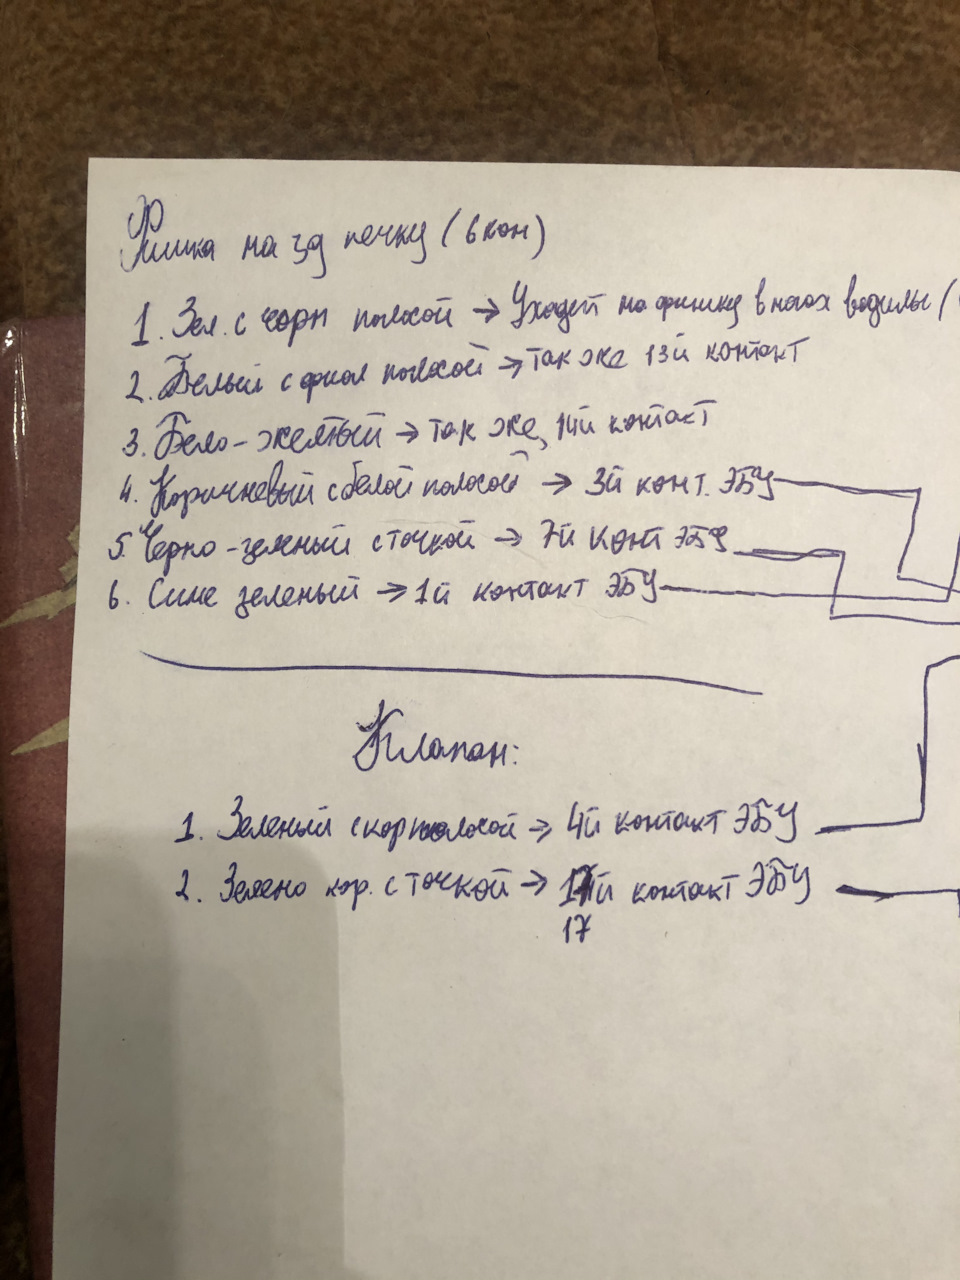 Фишка на зд печку (6 кон)
1. Зел. с черн полосой → Уходит на фишку в ногах водилы (
2. Белый с фиол полосой → так же 13й контакт
3. Бело-желтый → так же, 14й контакт
4. Коричневый с белой полосой → 3й конт. ЭБУ
5. Черно-зеленый с точкой → 7й конт ЭБУ
6. Сине зеленый → 1й контакт ЭБУ
Клапан:
1. Зеленый с кор полосой → 4й контакт ЭБУ
2. Зелено кор. с точкой → 17й контакт ЭБУ
17